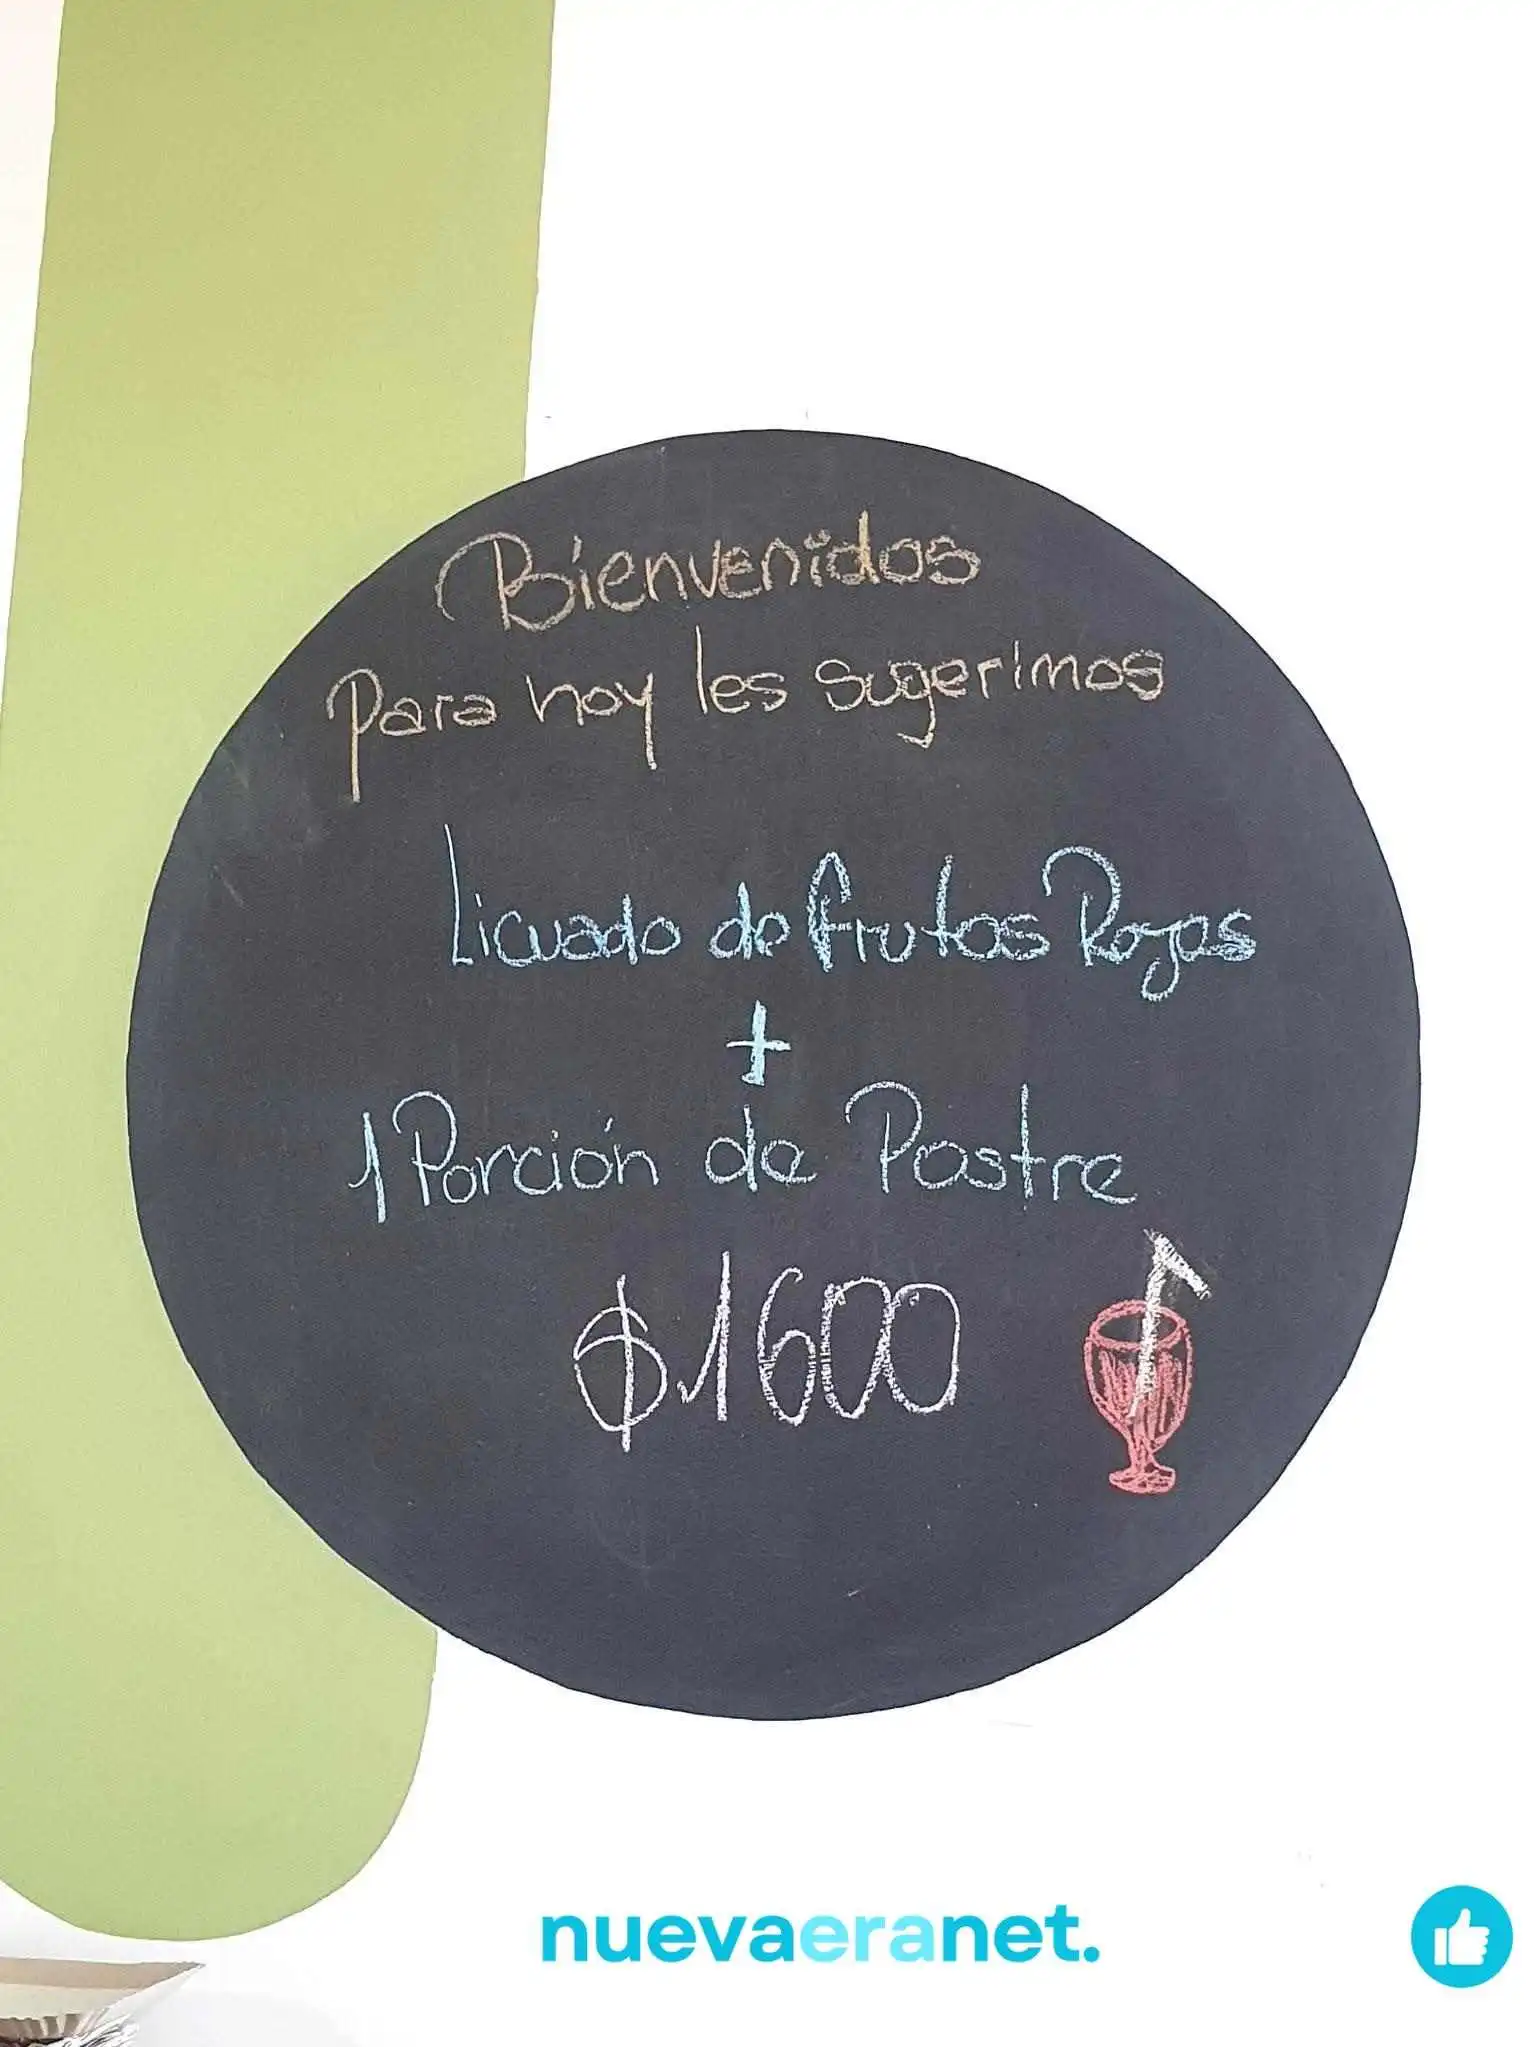 Bienvenidos
Para hoy les sugerimos
Licuado de frutos Rojos
+
1 Porción de Postre
$1600
nuevaeranet.